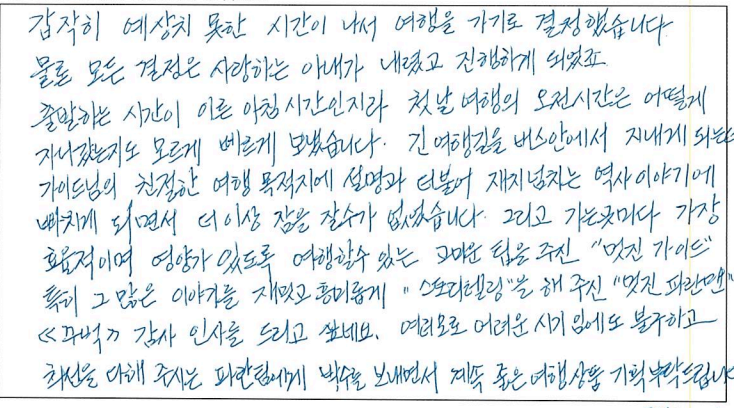 갑작히 예상치 못한 시간이 나서 여행을 가기로 결정했습니다.
물론 모든 결정은 사랑하는 아내가 내렸고 진행하게 되었죠.
출발하는 시간이 이른 아침시간인지라 첫날 여행의 오전시간은 어떻게
지나갔는지도 모르게 빠르게 보냈습니다. 긴 여행길을 버스안에서 지내게 되는데
가이드님의 친절한 여행 목적지에 설명과 더불어 재치넘차는 역사이야기에
빠치게 되면서 더이상 잠을 잘수가 없었습니다. 그리고 가는곳마다 가장
효율적이며 영양가 있도록 여행할수 있는 고마운 팁을 주신 "멋진 가이드"
특히 그 많은 이야기를 재밌고 흥미롭게 "스토리텔링"을 해 주신 "멋진 파란멘요"
≪꾸벅≫ 감사 인사를 드리고 싶네요. 여러모로 어려운 시기 임에도 불구하고
최선을 다해 주시는 파란팀에게 박수를 보내면서 계속 좋은 여행상품 기획부탁드립니다